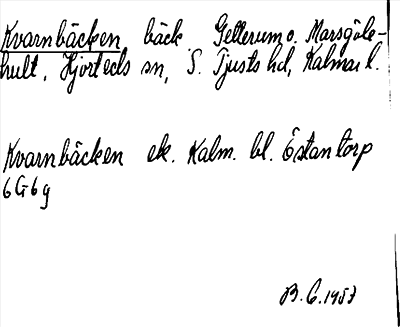 Kvarnbäcken bäck Gellerum o. Marsgöle-
hult, Hjorteds sn, S. Tjusts hd, Kalmar l.
Kvarnbäcken ek. Kalm. bl. Östantorp
6G6g
B.G. 1957